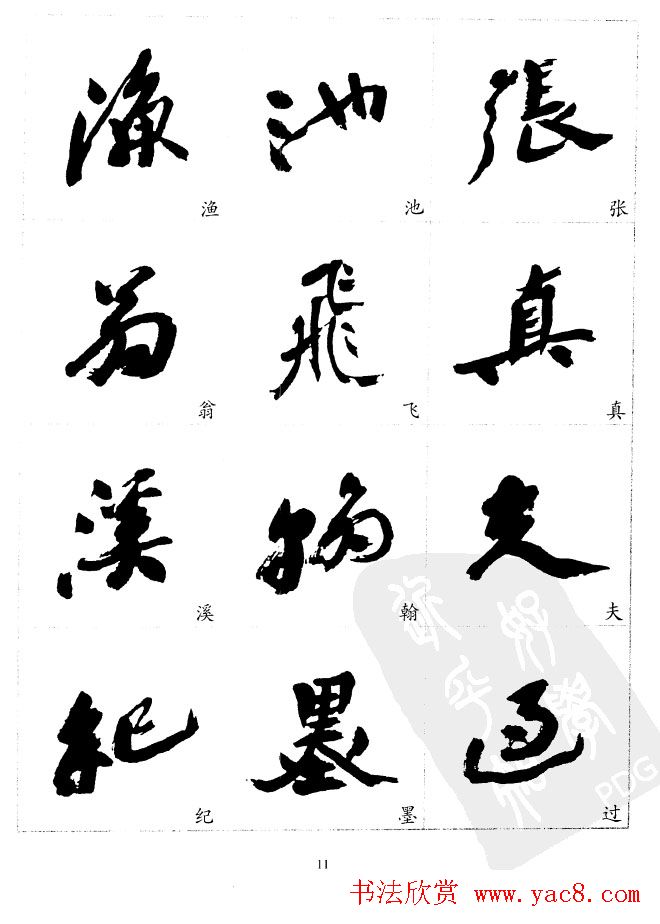 張
张
真
真
夫
夫
過
过
池
池
飛
飞
翰
翰
墨
墨
漁
渔
翁
翁
溪
溪
紀
纪
PDG
11
书法欣赏 www.yac8.com